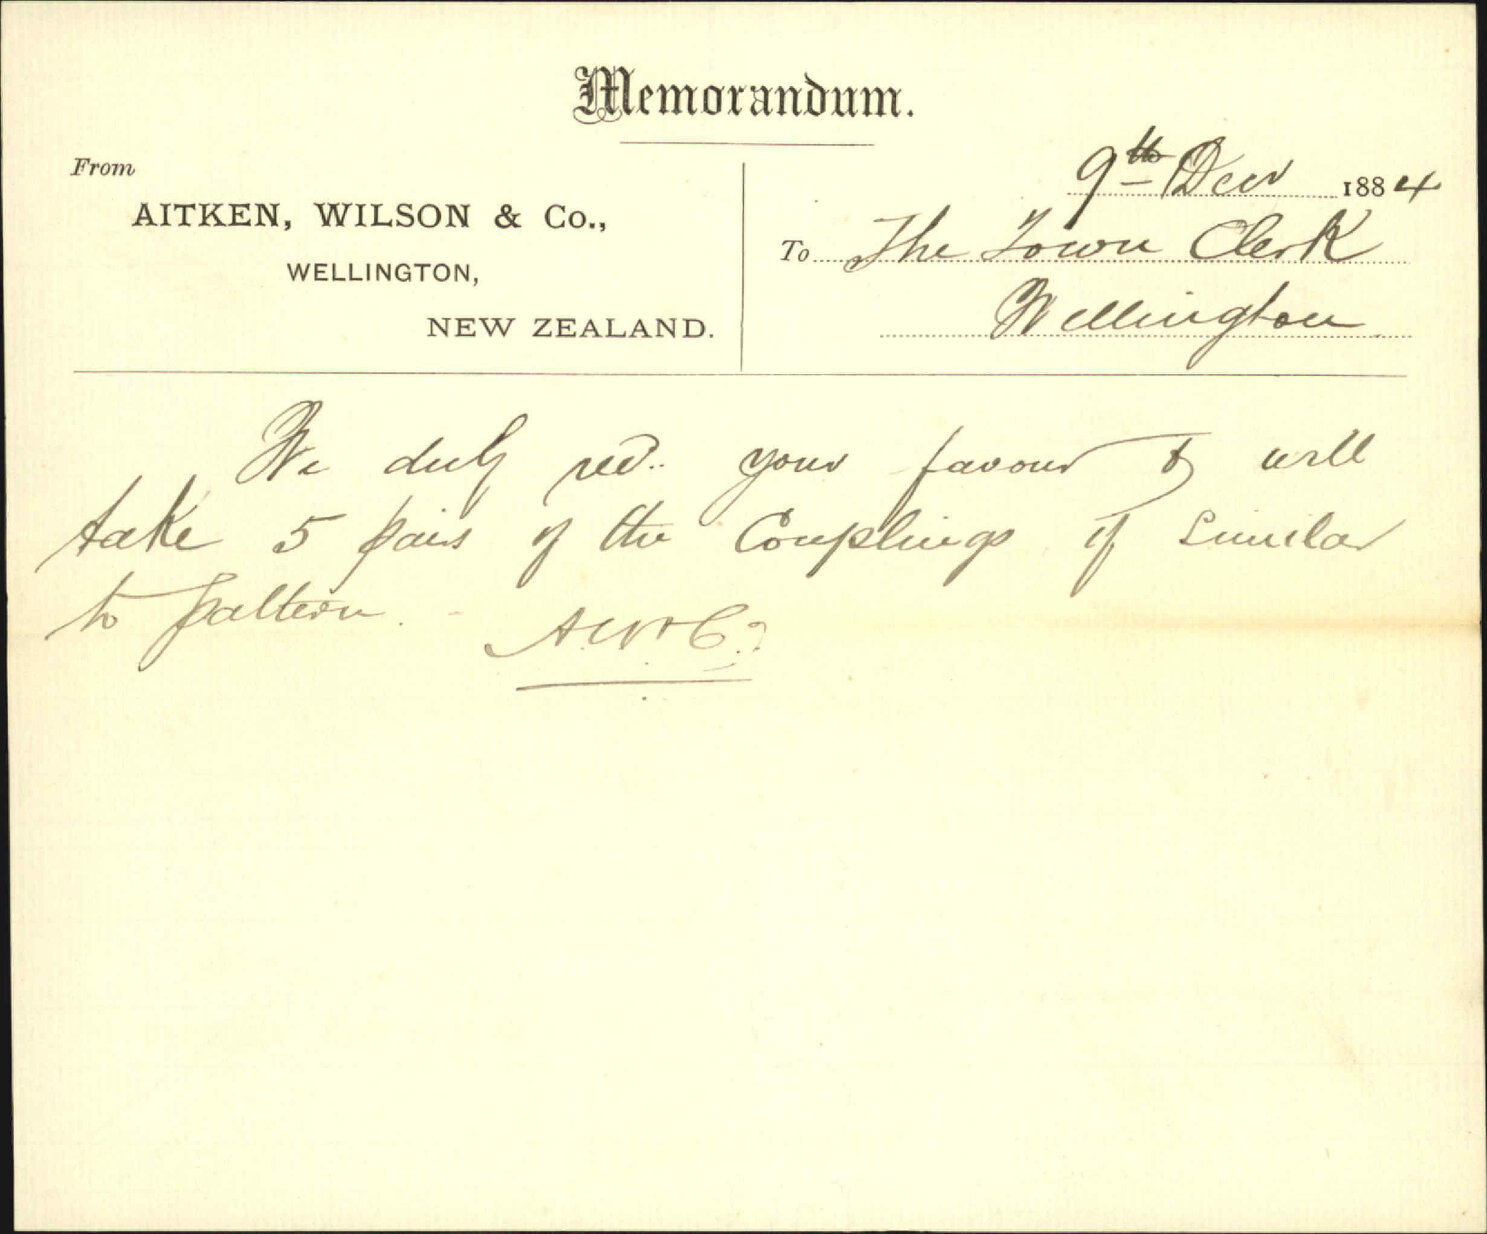 Memorandum.
From
AITKEN, WILSON & Co.,
WELLINGTON,
NEW ZEALAND.
9th Decr 1884
To The Town Clerk
Wellington
We duly recd. your favour & will
take 5 pairs of the Couplings if Similar
to pattern. A.W & Co.